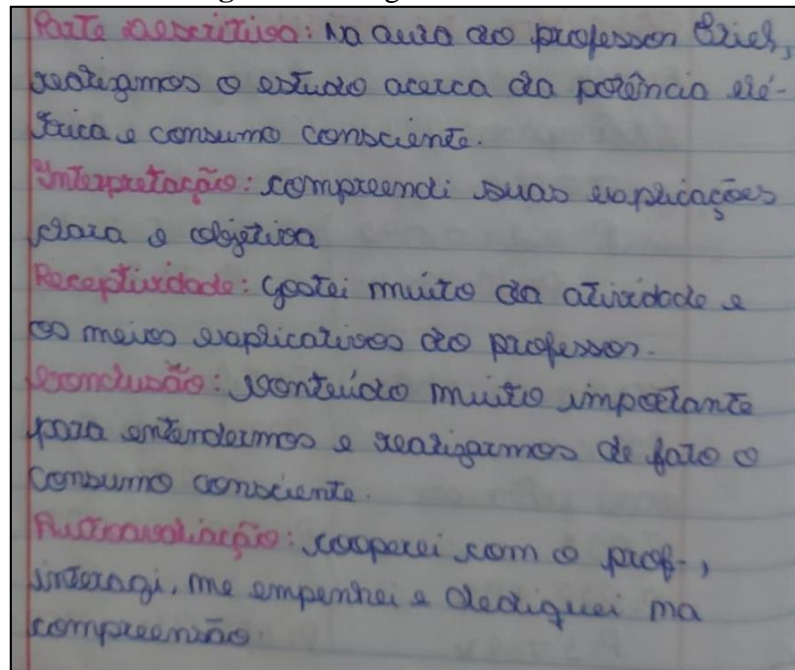 Parte Descritiva: Na aula do professor Erich,
realizamos o estudo acerca da potência elé-
trica e consumo consciente.
Interpretação: compreendi suas explicações
clara e objetiva
Receptividade: gostei muito da atividade e
os meios explicativos do professor.
Conclusão: conteúdo muito importante
para entendermos e realizarmos de fato o
consumo consciente.
Autoavaliação: cooperei com o prof-,
interagi, me empenhei e dediquei na
compreensão.